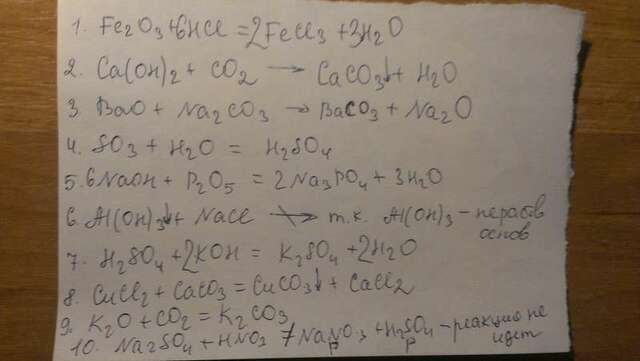 1. Fe₂O₃+6HCl =2FeCl₃ +3H₂O
2. Ca(OH)₂ + CO₂ → CaCO₃↓ + H₂O
3. BaO + Na₂CO₃ → BaCO₃ + Na₂O
4. SO₃ + H₂O = H₂SO₄
5. 6NaOH + P₂O₅ = 2Na₃PO₄ + 3H₂O
6. Al(OH)₃↓ + NaCl ↛ т.к. Al(OH)₃ - нераств
основ
7. H₂SO₄ +2KOH = K₂SO₄ +2H₂O
8. CuCl₂ + CaCO₃ = CuCO₃↓ + CaCl₂
9. K₂O + CO₂ = K₂CO₃
10. Na₂SO₄ + HNO₃ ≠ NaNO₃ + H₂SO₄ - реакция не
р р идет